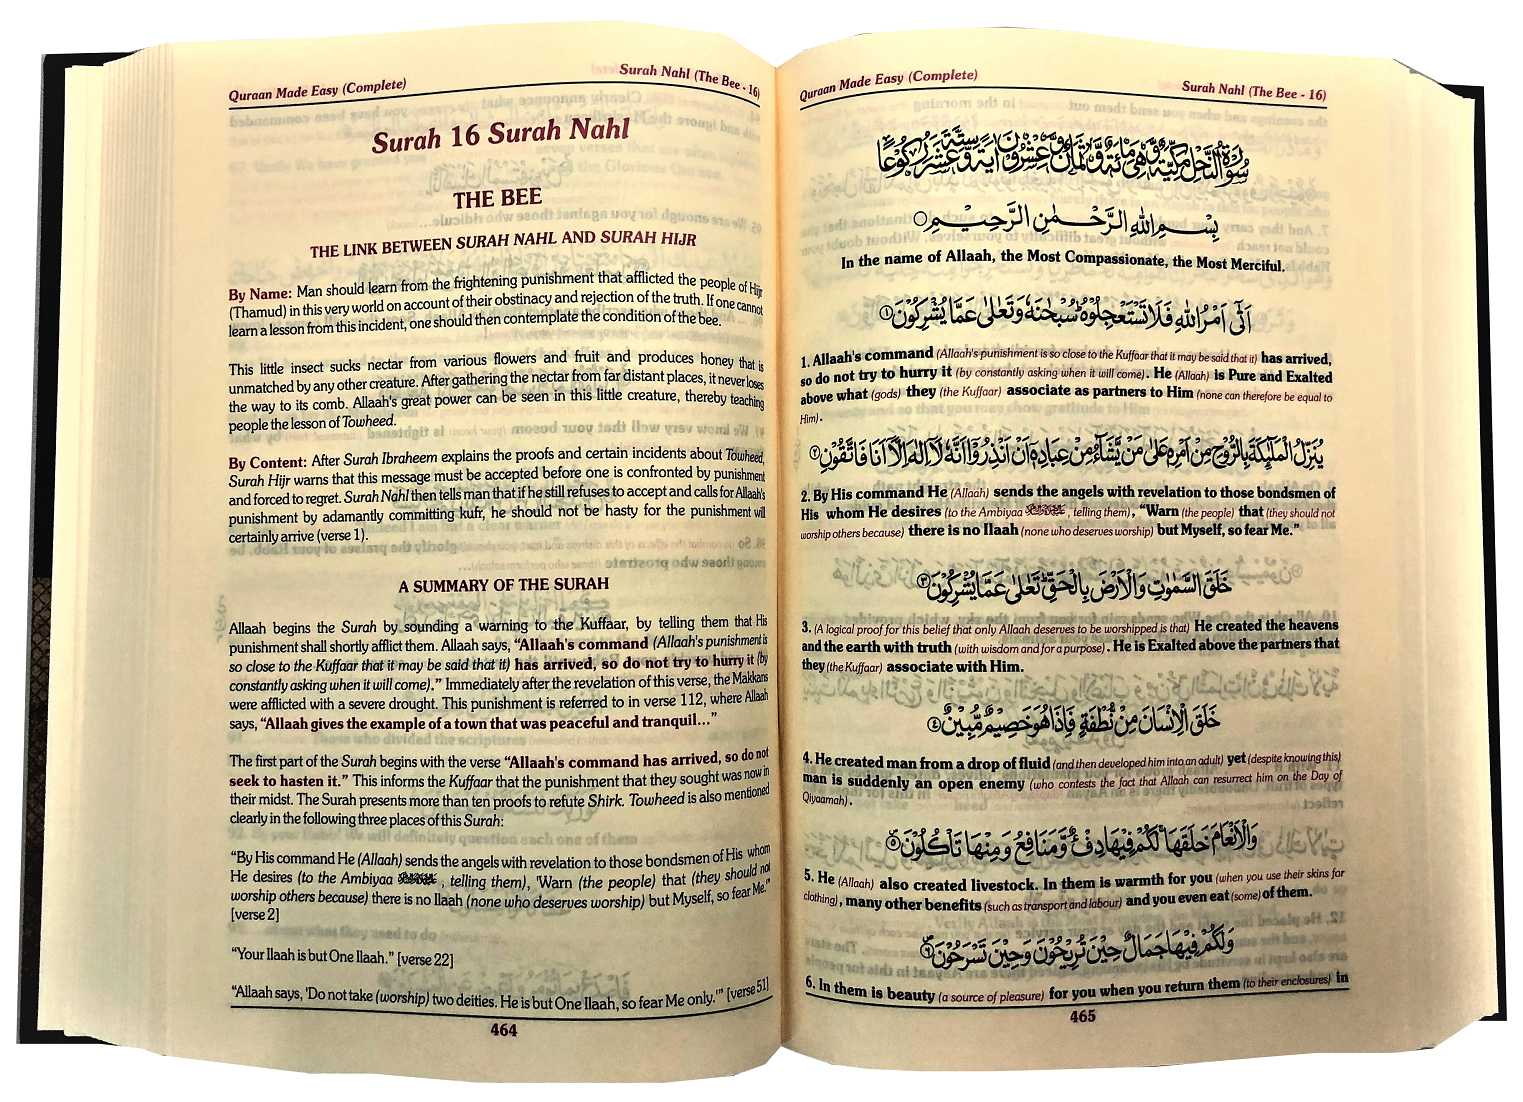 Quraan Made Easy (Complete)
Surah Nahl (The Bee - 16)
Surah 16 Surah Nahl
THE BEE
THE LINK BETWEEN SURAH NAHL AND SURAH HIJR
By Name: Man should learn from the frightening punishment that afflicted the people of Hijr
(Thamud) in this very world on account of their obstinacy and rejection of the truth. If one cannot
learn a lesson from this incident, one should then contemplate the condition of the bee.
This little insect sucks nectar from various flowers and fruit and produces honey that is
unmatched by any other creature. After gathering the nectar from far distant places, it never loses
the way to its comb. Allaah's great power can be seen in this little creature, thereby teaching
people the lesson of Towheed.
By Content: After Surah Ibraheem explains the proofs and certain incidents about Towheed,
Surah Hijr warns that this message must be accepted before one is confronted by punishment
and forced to regret. Surah Nahl then tells man that if he still refuses to accept and calls for Allaah's
punishment by adamantly committing kufr, he should not be hasty for the punishment will
certainly arrive (verse 1).
A SUMMARY OF THE SURAH
Allaah begins the Surah by sounding a warning to the Kuffaar, by telling them that His
punishment shall shortly afflict them. Allaah says, “Allaah's command (Allaah's punishment is
so close to the Kuffaar that it may be said that it) has arrived, so do not try to hurry it (by
constantly asking when it will come).” Immediately after the revelation of this verse, the Makkans
were afflicted with a severe drought. This punishment is referred to in verse 112, where Allaah
says, “Allaah gives the example of a town that was peaceful and tranquil...”
The first part of the Surah begins with the verse “Allaah's command has arrived, so do not
seek to hasten it.” This informs the Kuffaar that the punishment that they sought was now in
their midst. The Surah presents more than ten proofs to refute Shirk. Towheed is also mentioned
clearly in the following three places of this Surah:
“By His command He (Allaah) sends the angels with revelation to those bondsmen of His whom
He desires (to the Ambiyaa , telling them), 'Warn (the people) that (they should not
worship others because) there is no Ilaah (none who deserves worship) but Myself, so fear Me.'”
[verse 2]
“Your Ilaah is but One Ilaah.” [verse 22]
“Allaah says, 'Do not take (worship) two deities. He is but One Ilaah, so fear Me only.'” [verse 51]
464
Quraan Made Easy (Complete)
Surah Nahl (The Bee - 16)
سُوْرَةُ النَّحْلِ مَكِّيَّةٌ وَّهِيَ مِائَةٌ وَّثَمَانٌ وَّعِشْرُوْنَ اٰيَةً وَّسِتَّةَ عَشَرَ رُكُوْعًا
بِسْمِ اللّٰهِ الرَّحْمٰنِ الرَّحِيْمِ ○
In the name of Allaah, the Most Compassionate, the Most Merciful.
اَتٰٓى اَمْرُ اللّٰهِ فَلَا تَسْتَعْجِلُوْهُ ؕ سُبْحٰنَهٗ وَتَعٰلٰى عَمَّا يُشْرِكُوْنَ ﴿۱﴾
1. Allaah's command (Allaah's punishment is so close to the Kuffaar that it may be said that it) has arrived,
so do not try to hurry it (by constantly asking when it will come). He (Allaah) is Pure and Exalted
above what (gods) they (the Kuffaar) associate as partners to Him (none can therefore be equal to
Him).
يُنَزِّلُ الْمَلٰٓئِكَةَ بِالرُّوْحِ مِنْ اَمْرِهٖ عَلٰى مَنْ يَّشَآءُ مِنْ عِبَادِهٖۤ اَنْ اَنْذِرُوْۤا اَنَّهٗ لَاۤ اِلٰهَ اِلَّاۤ اَنَا فَاتَّقُوْنِ ﴿۲﴾
2. By His command He (Allaah) sends the angels with revelation to those bondsmen of
His whom He desires (to the Ambiyaa , telling them), “Warn (the people) that (they should not
worship others because) there is no Ilaah (none who deserves worship) but Myself, so fear Me.”
خَلَقَ السَّمٰوٰتِ وَالْاَرْضَ بِالْحَقِّ ؕ تَعٰلٰى عَمَّا يُشْرِكُوْنَ ﴿۳﴾
3. (A logical proof for this belief that only Allaah deserves to be worshipped is that) He created the heavens
and the earth with truth (with wisdom and for a purpose). He is Exalted above the partners that
they (the Kuffaar) associate with Him.
خَلَقَ الْاِنْسَانَ مِنْ نُّطْفَةٍ فَاِذَا هُوَ خَصِيْمٌ مُّبِيْنٌ ﴿۴﴾
4. He created man from a drop of fluid (and then developed him into an adult) yet (despite knowing this)
man is suddenly an open enemy (who contests the fact that Allaah can resurrect him on the Day of
Qiyaamah).
وَالْاَنْعَامَ خَلَقَهَا ۚ لَكُمْ فِيْهَا دِفْءٌ وَّمَنَافِعُ وَمِنْهَا تَاْكُلُوْنَ ﴿۵﴾
5. He (Allaah) also created livestock. In them is warmth for you (when you use their skins for
clothing), many other benefits (such as transport and labour) and you even eat (some) of them.
وَلَكُمْ فِيْهَا جَمَالٌ حِيْنَ تُرِيْحُوْنَ وَحِيْنَ تَسْرَحُوْنَ ﴿۶﴾
6. In them is beauty (a source of pleasure) for you when you return them (to their enclosures) in
465